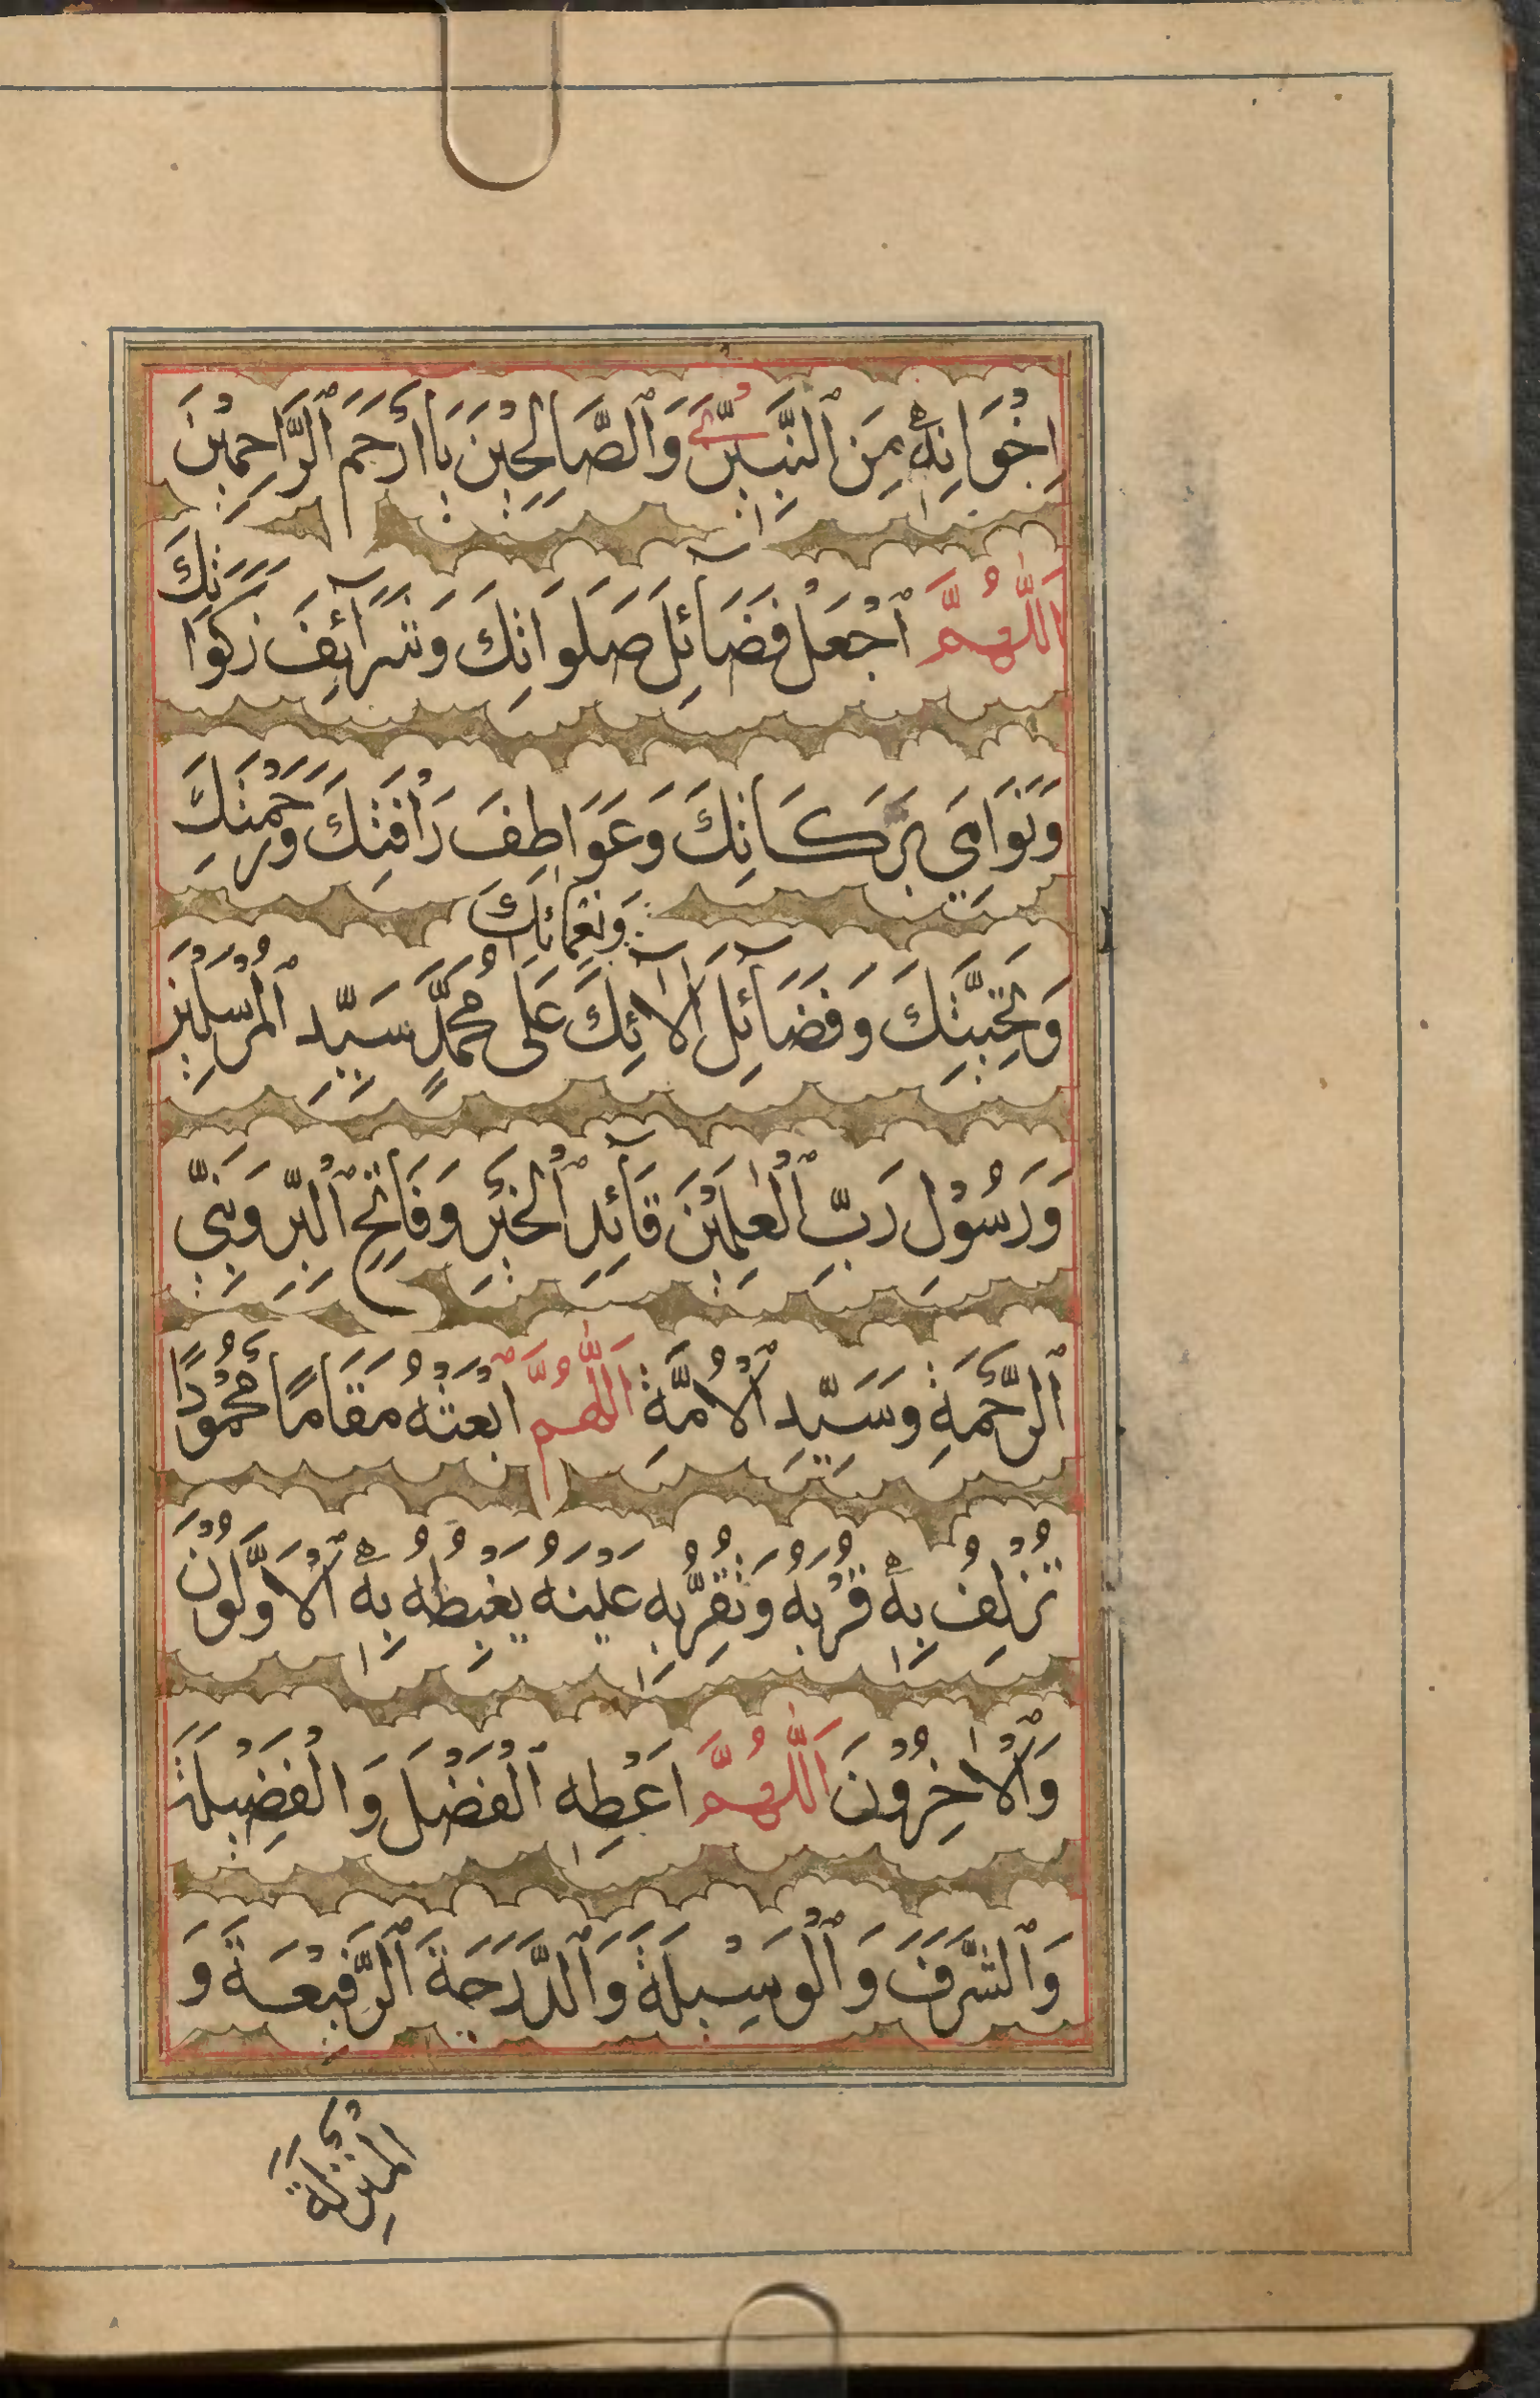 اِخْوَانِهٖ مِنَ ٱلنَّبِيّٖنَ وَٱلصَّالِحِيْنَ يَا اَرْحَمَ ٱلرَّاحِمِيْنَ
اَللّٰهُمَّ ٱجْعَلْ فَضَآئِلَ صَلَوَاتِكَ وَشَرَآئِفَ زَكَوَاتِكَ
وَنَوَامِيَ بَرَكَاتِكَ وَعَوَاطِفَ رَاْفَتِكَ وَرَحْمَتِكَ
وَتَحِيَّتِكَ وَفَضَآئِلَ اٰلَآئِكَ وَنَعْمَائِكَ عَلٰى مُحَمَّدٍ سَيِّدِ ٱلْمُرْسَلِيْنَ
وَرَسُوْلِ رَبِّ ٱلْعٰلَمِيْنَ قَآئِدِ ٱلْخَيْرِ وَفَاتِحِ ٱلْبِرِّ وَنَبِيِّ
ٱلرَّحْمَةِ وَسَيِّدِ ٱلْاُمَّةِ اَللّٰهُمَّ ٱبْعَثْهُ مَقَامًا مَحْمُوْدًا
تُزْلِفُ بِهٖ قُرْبَهُ وَتُقِرُّ بِهٖ عَيْنَهُ يَغْبِطُهُ بِهٖ ٱلْاَوَّلُوْنَ
وَٱلْاٰخِرُوْنَ اَللّٰهُمَّ اَعْطِهِ ٱلْفَضْلَ وَالْفَضِيْلَةَ
وَٱلشَّرَفَ وَٱلْوَسِيْلَةَ وَٱلدَّرَجَةَ ٱلرَّفِيْعَةَ وَ
الْمَنْزِلَةَ